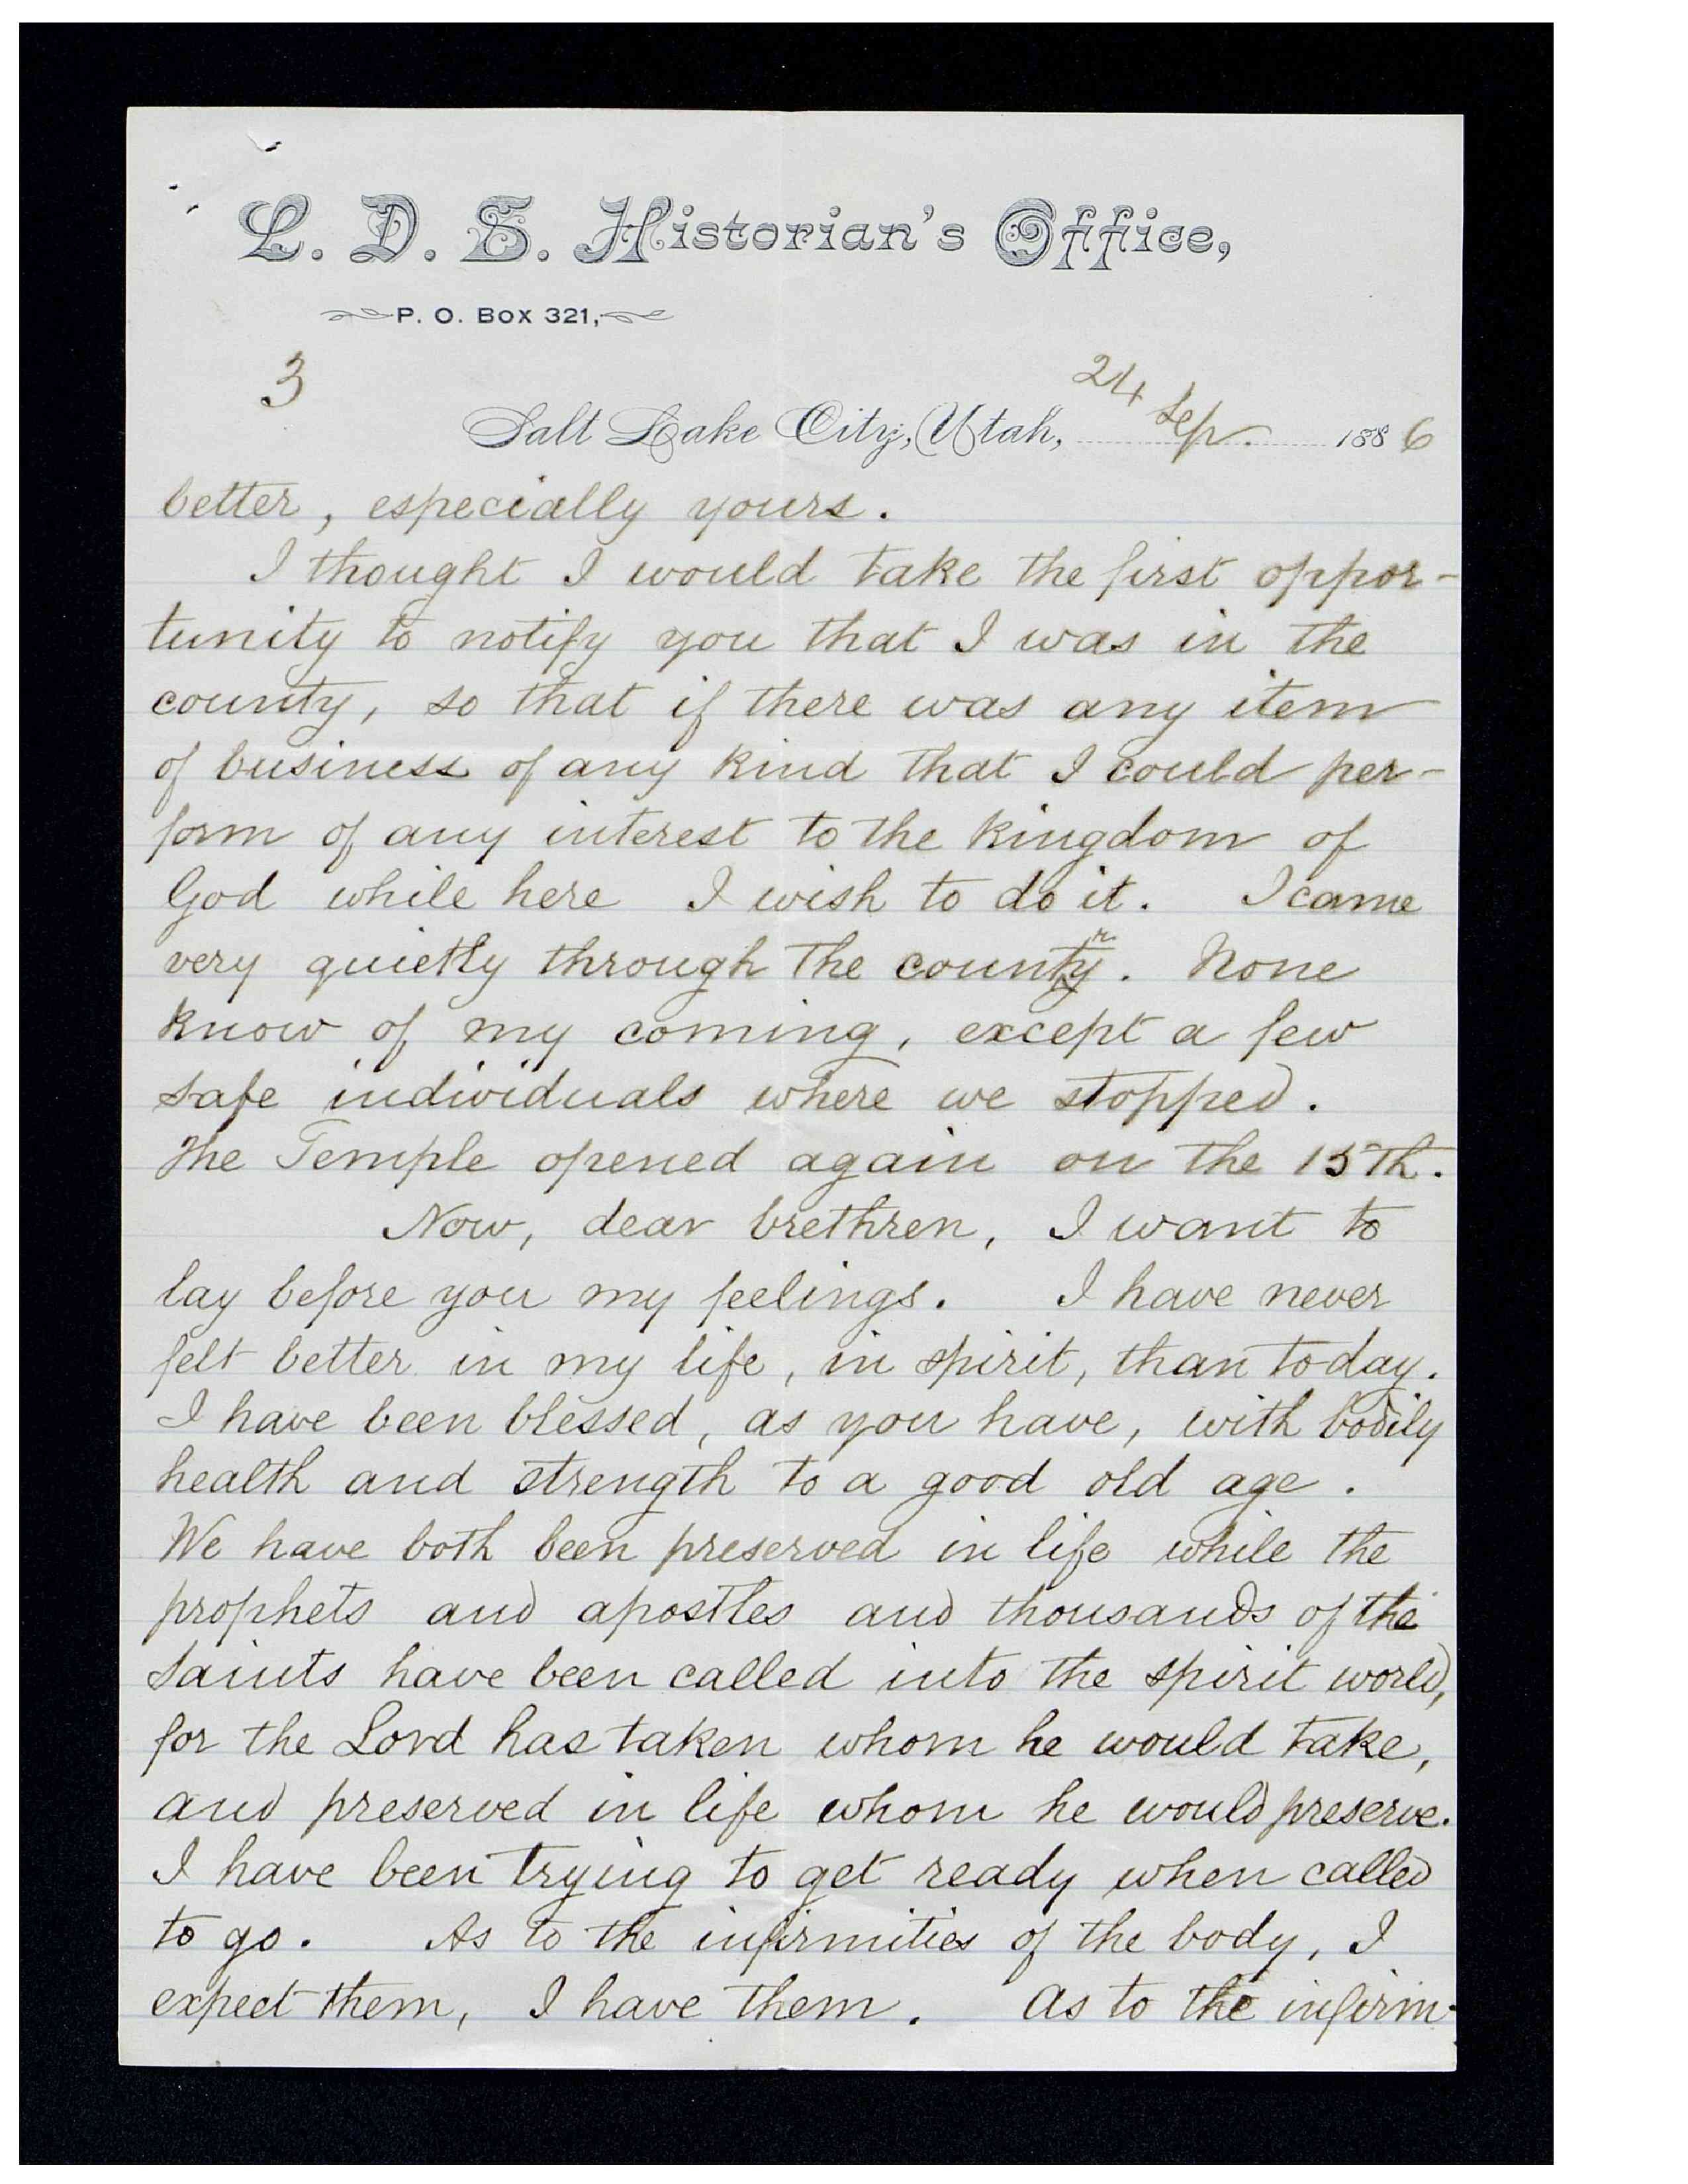 L. D. S. Historian's Office,
P. O. Box 321,
3
24 Sep.
Salt Lake City, Utah, 1886
better, especially yours.
I thought I would take the first oppor-
tunity to notify you that I was in the
county, so that if there was any item
of business of any kind that I could per-
form of any interest to the kingdom of
God while here I wish to do it. I came
very quietly through the country. None
know of my coming, except a few
safe individuals where we stopped.
The Temple opened again on the 15th.
Now, dear brethren, I want to
lay before you my feelings. I have never
felt better in my life, in spirit, than today.
I have been blessed, as you have, with bodily
health and strength to a good old age.
We have both been preserved in life while the
prophets and apostles and thousands of the
Saints have been called into the spirit world,
for the Lord has taken whom he would take,
and preserved in life whom he would preserve.
I have been trying to get ready when called
to go. As to the infirmities of the body, I
expect them, I have them. As to the infirm-